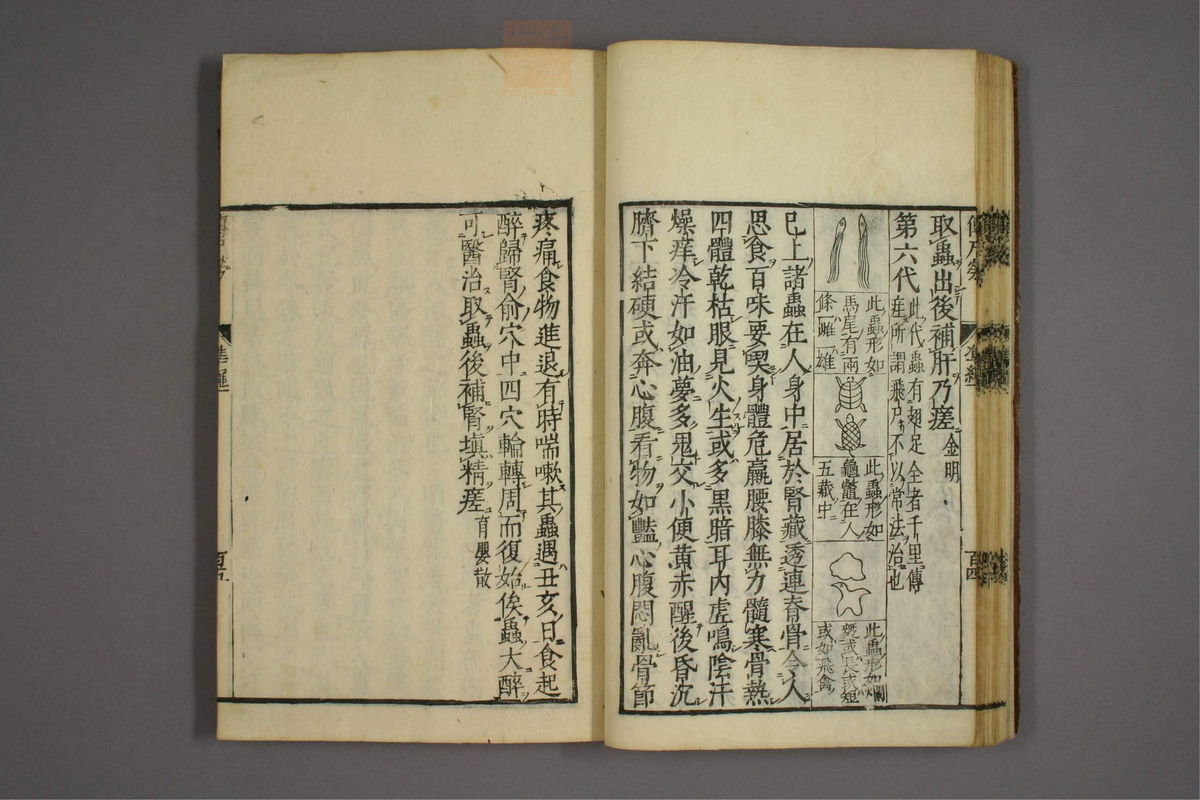 取蟲出後補肝乃瘥 金明
第六代 此代蟲有翅足全者千里傳
疰所謂飛尸不以常法治也
此蟲形如
馬尾有兩
條一雌一雄
此蟲形如
龜鱉在人
五藏中
此蟲形如爛
麪或長或短
或如飛禽
已上諸蟲在人身中居於腎藏透連脊骨令人
思食百味要喫身體危羸腰膝無力髓寒骨熱
四體乾枯眼見火生或多黑暗耳内虚鳴陰汗
燥痒冷汗如油夢多鬼交小便黄赤醒後昏沉
臍下結硬或奔心腹看物如豔心腹悶亂骨節
疼痛食物進退有時喘嗽其蟲遇丑亥日食起
醉歸腎俞穴中四穴輪轉周而復始俟蟲大醉
可醫治取蟲後補腎填精瘥 育嬰散
準繩